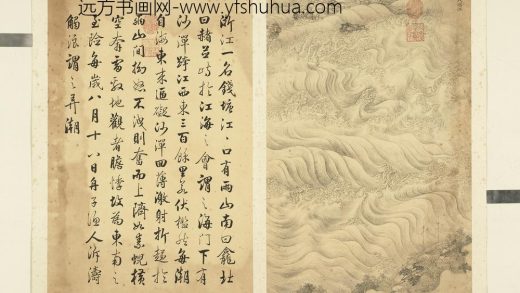 远方书画网 www.yfshuhua.com
浙江一名錢塘江〻口有兩山南曰龕北
曰赭並峙於江海之會謂之海門下有
沙潬跨江西東三百餘里若伏檻然每潮
自海東來逼礙沙潬回薄激射折趨於
兩山間拗怒不洩則奮而上濟如素蜺橫
空奔雷殷地觀者膽悸故為東南之
至險每歲八月十八日舟子漁人泝濤
觸浪謂之弄潮